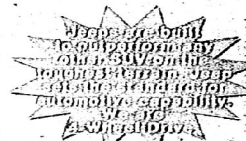 Jeeps are built
to outperform any
other SUV on the
toughest terrain. Jeep
sets the standard for
automotive capability.
We are
4-Wheel Drive